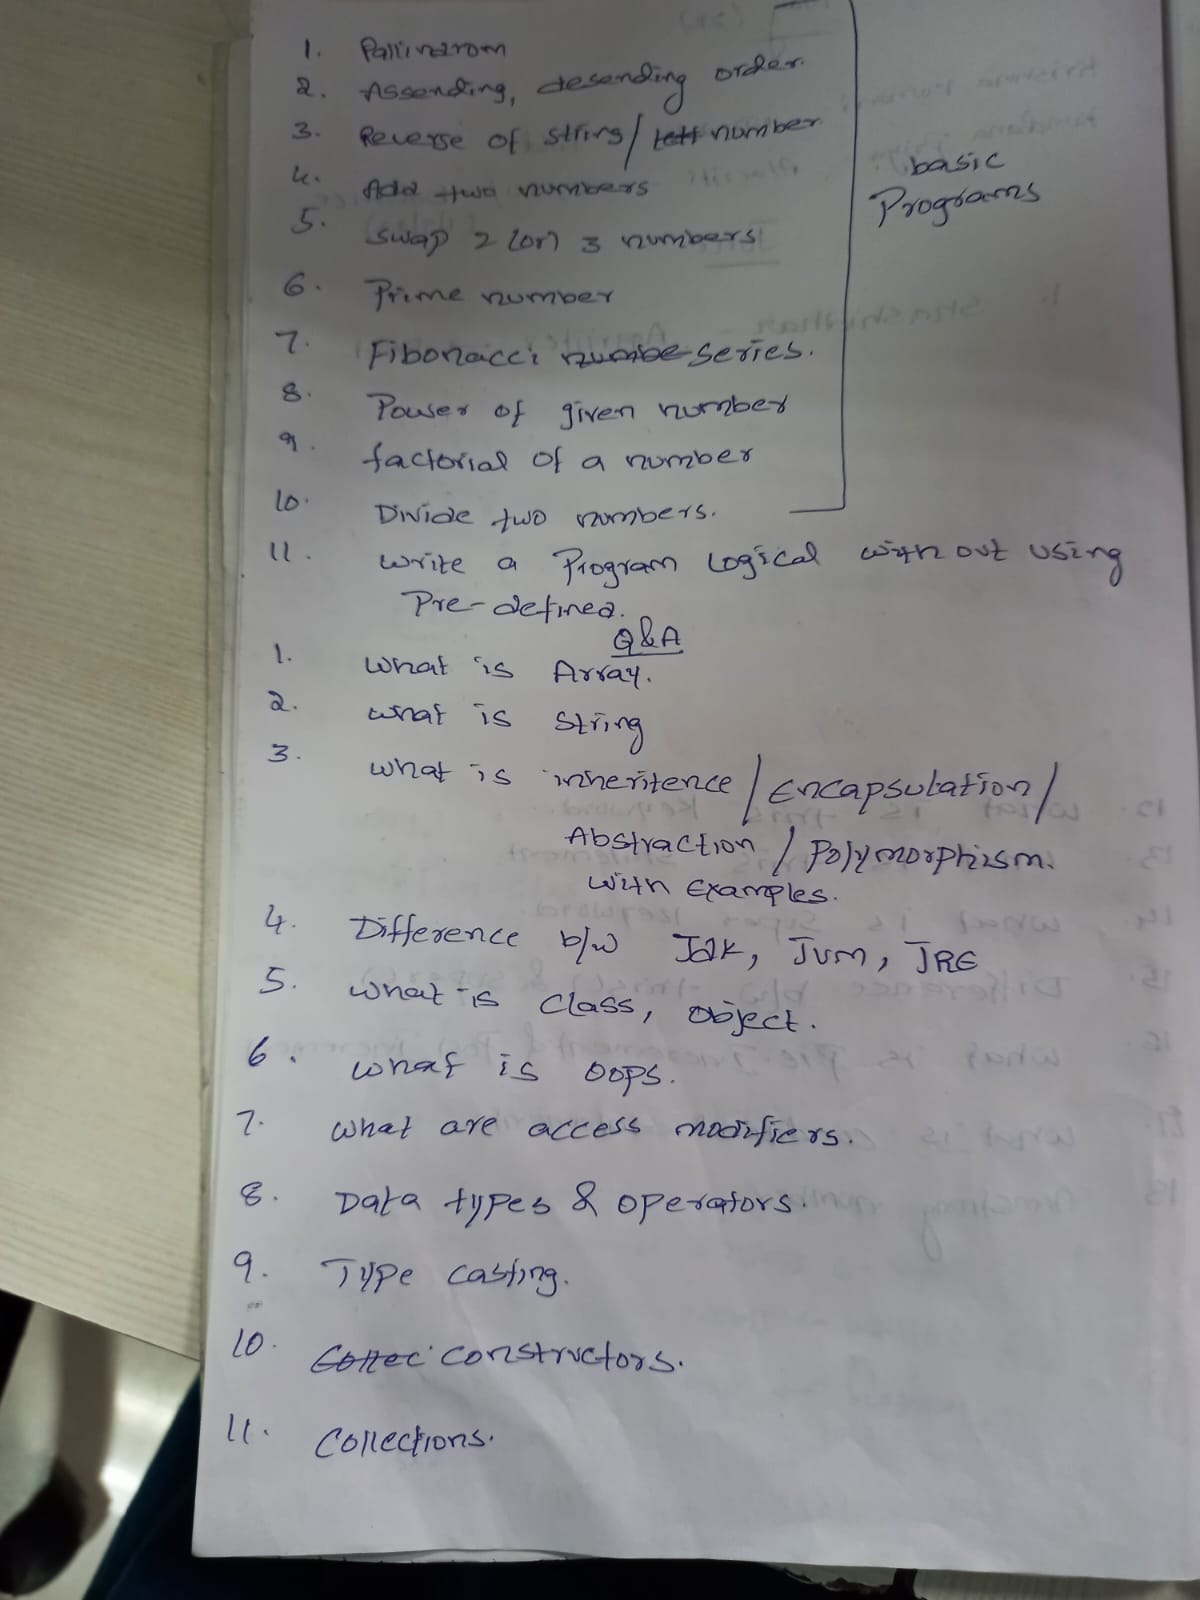 1. Pallindrom
2. Assending, desending order.
3. Reverse of string / number
4. Add two numbers
5. Swap 2 (or) 3 numbers
6. Prime number
7. Fibonacci numbe series.
8. Power of given number
9. factorial of a number
10. Divide two numbers.
basic
Programs
11. write a Program Logical with out using
Pre-defined.
Q&A
1. What is Array.
2. what is string
3. what is inheritence / Encapsulation /
Abstraction / Polymorphism.
with Examples.
4. Difference b/w Jdk, Jvm, JRE
5. what is class, object.
6. what is oops.
7. what are access modifiers.
8. Data types & operators.
9. Type casting.
10. Collec constructors.
11. Collections.